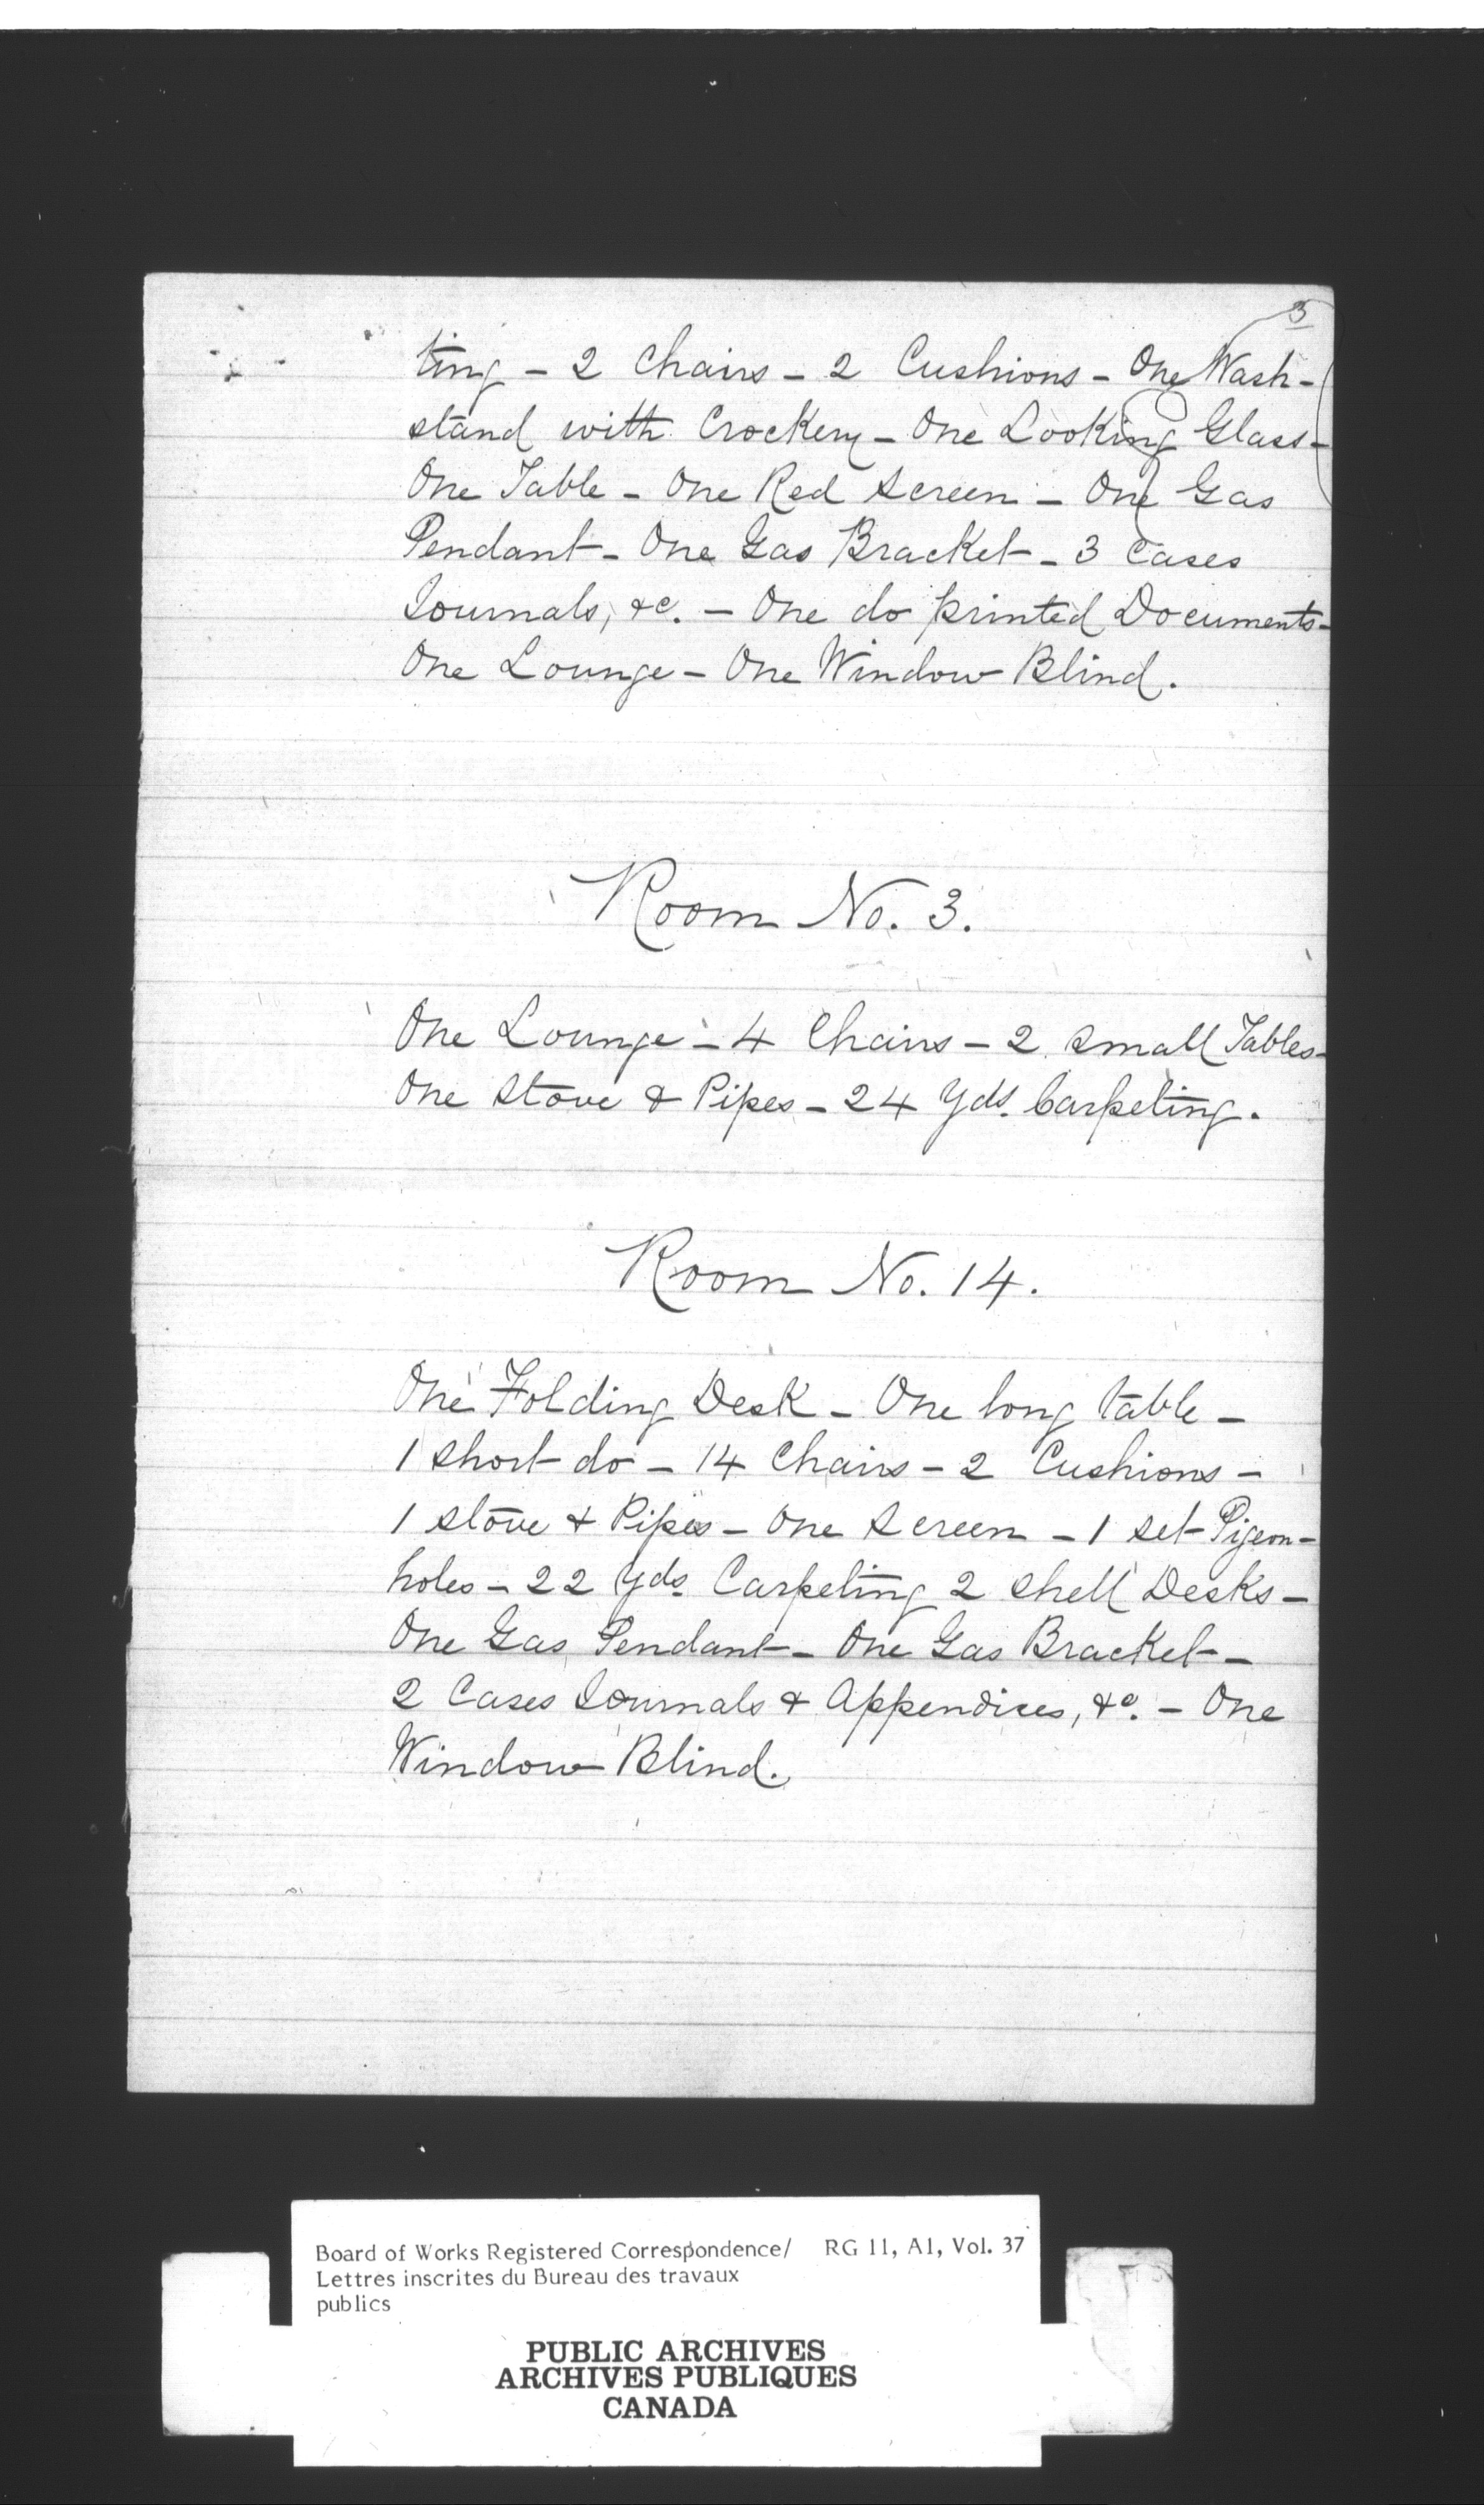 3
ting - 2 Chairs - 2 Cushions - One Wash-
stand with Crockery - One Looking Glass -
One Table - One Red Screen - One Gas
Pendant - One Gas Bracket - 3 Cases
Journals, &c. - One do printed Documents -
One Lounge - One Window Blind.
Room No. 3.
One Lounge - 4 Chairs - 2 small Tables -
One Stove & Pipes - 24 Yds. Carpeting.
Room No. 14.
One Folding Desk - One long table -
1 short do - 14 Chairs - 2 Cushions -
1 stove & Pipes - One Screen - 1 set Pigeon-
holes - 22 Yds Carpeting 2 shell Desks -
One Gas Pendant - One Gas Bracket -
2 Cases Journals & Appendices, &c. - One
Window Blind.
Board of Works Registered Correspondence/ RG 11, A1, Vol. 37
Lettres inscrites du Bureau des travaux
publics
PUBLIC ARCHIVES
ARCHIVES PUBLIQUES
CANADA